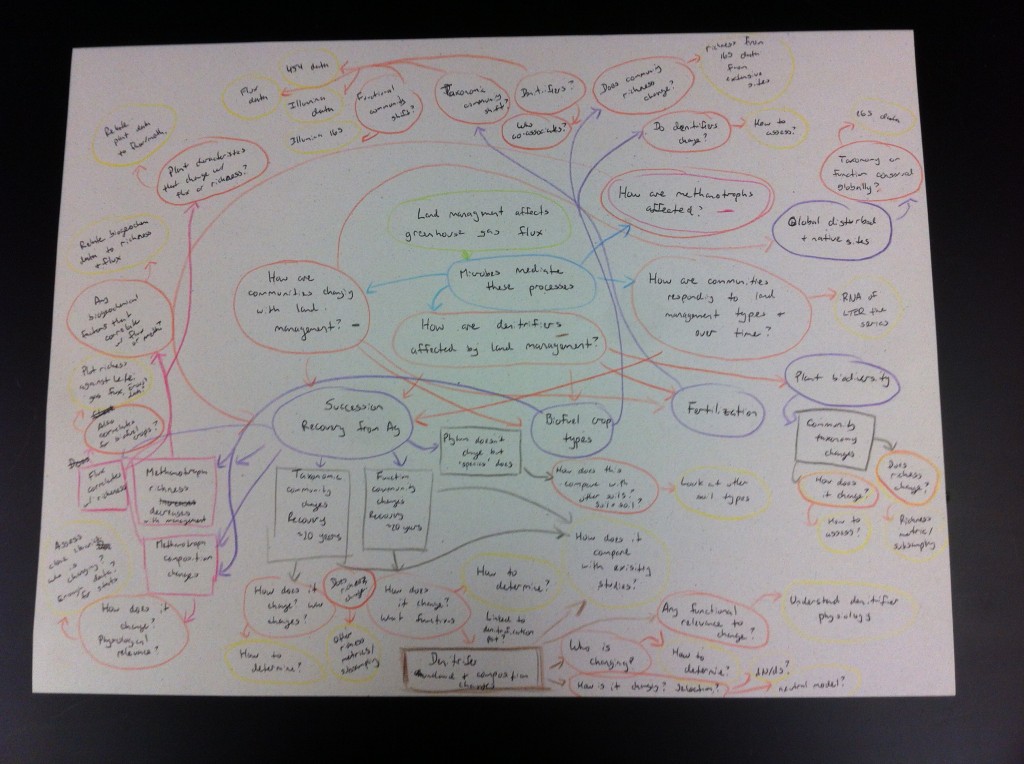 454 data
Flux
data
Illumina
data
Illumina 16S
Functional
community
shift?
Taxonomic
community
shift?
Denitrifiers?
Who
co-associates?
Does community
richness change?
richness from
16S data
from
extensive
sites
Do denitrifiers
change?
How to
assess?
16S data
Taxonomy or
function conserved
globally?
Global disturbed
+ native sites
Relate
plant data
to
Plant characteristics
that change w/
flux or richness?
How are methanotrophs
affected?
Land managment affects
greenhouse gas flux
Microbes mediate
these processes
How are
communities changing
with land
management?
How are denitrifiers
affected by land management?
How are communities
responding to land
management types +
over time?
RNA of
LTER time
series
Relate biogeochem
data to richness
+ flux
Any
biogeochemical
factors that
correlate
w/ flux
or model?
Plot richness
against
gas flux
Also
correlates
for biofuel
crops?
Flux
correlates
w/ richness
Methanotroph
richness
decreases
with management
Methanotroph
composition
changes
Assess
who
changing?
How does it
change?
Physiological
relevance?
Succession
Recovery from Ag
Biofuel crop
types
Fertilization
Plant biodiversity
Community
taxonomy
changes
Does
richness
change?
How does
it change?
How to
assess?
Richness
metric/
subsampling
Phylum doesn't
change but
"species" does
How does this
compare with
other soils?
Look at other
soil types
Taxonomic
community
changes
Recovery
~10 years
Function
community
changes
Recovery
~20 years
How does it
compare
with existing
studies?
How does it
change? Who
changes?
Does
richness
change?
How does
it change?
What functions
How to
determine?
How to
determine?
Other
richness
metrics/
subsampling
Linked to
denitrification
pot?
Denitrifier
+ composition
changes
Who is
changing?
Any functional
relevance to
change?
Understand denitrifier
physiology
How to
determine?
How is it changing? Selection?
dN/dS?
neutral model?